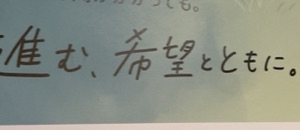 ても。
進む、希望とともに。